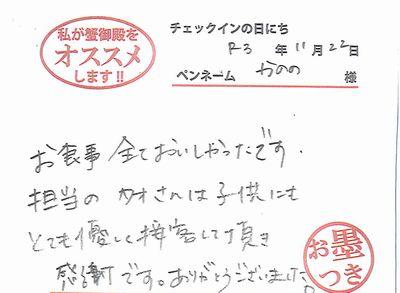 私が蟹御殿を
オススメ
します!!
チェックインの日にち
R3 年 11 月 22 日
ペンネーム かのの 様
お食事 全ておいしかったです.
担当の カオさんは子供にも
とても優しく接客して頂き
感謝です。ありがとうございました
お墨
つき